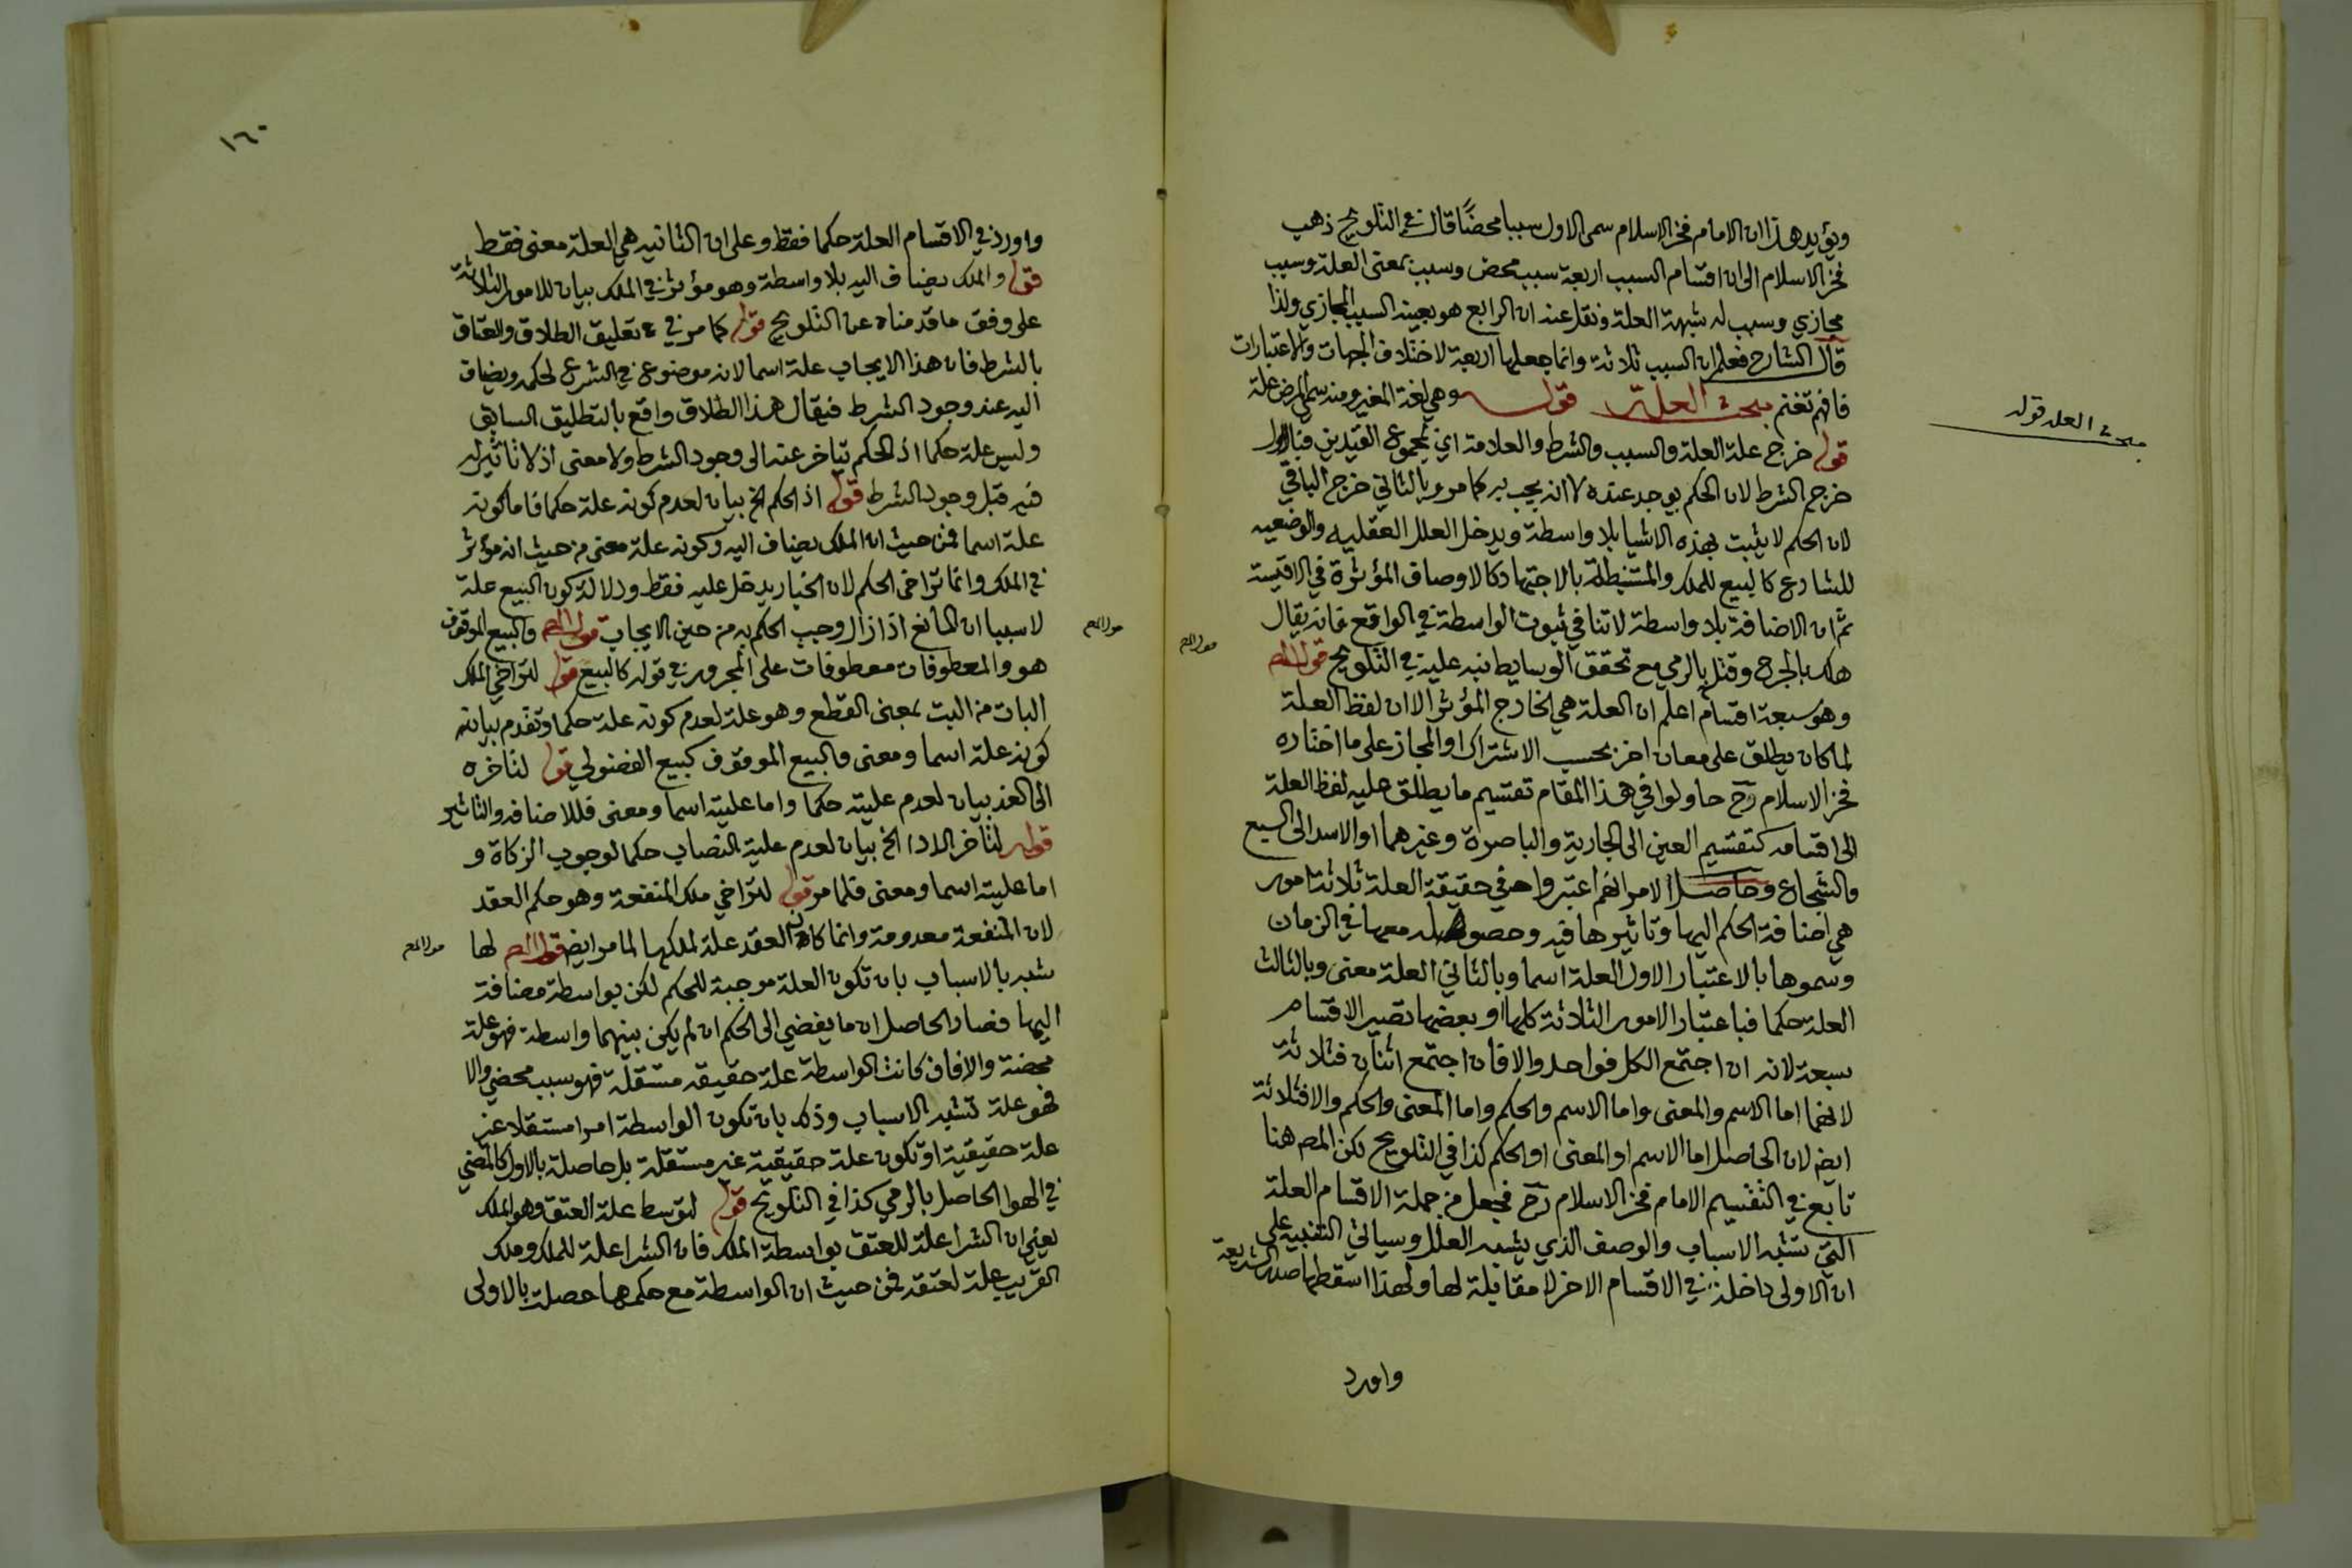 ويؤيد هذا ان الامام فخر الاسلام سمى الاول سببا محضًا قال في التلويح ذهب
فخر الاسلام الى ان اقسام السبب اربعة سبب محض وسبب بمعنى العلة وسبب
مجازي وسبب له شبهة العلة ونقل عنه ان الرابع هو بعينه السبب المجازي ولذا
قال الشارح فعلم ان السبب ثلاثة وانما جعلها اربعة لاختلاف الجهات والاعتبارات
فافهم تغنم مبحث العلة قوله وهي لغة المغير ومنه سمي المرض علة
مبحث العلة قوله
قوله خرج علة العلة والسبب والشرط والعلامة اي بمجموع القيدين فبالاول
خرج الشرط لان الحكم يوجد عنده لا انه يجب به كما مر وبالثاني خرج الباقي
لان الحكم لا يثبت بهذه الاشيا بلا واسطة ويدخل العلل العقليه والوضعيه
للشارع كالبيع للملك والمستنبطة بالاجتهاد كالاوصاف المؤثرة في الاقيسة
ثم ان الاضافة بلا واسطة لا تنافي ثبوت الواسطة في الواقع فانه يقال
هلك بالجرح وقتل بالرمي مع تحقق الوسايط نبه عليه في التلويح قوله المص
وهو سبعة اقسام اعلم ان العلة هي الخارج المؤثر الا ان لفظ العلة
لما كان يطلق على معان اخر بحسب الاشتراك او المجاز على ما اختاره
فخر الاسلام رح حاولوا في هذا المقام تقسيم ما يطلق عليه لفظ العلة
الى اقسامه كتقسيم العين الى الجارية والباصرة وغيرهما او الاسد الى السبع
والشجاع وحاصل الامر انهم اعتبروا في حقيقة العلة ثلاثة امور
هي اضافة الحكم اليها وتاثيرها فيه وحصوله معها في الزمان
وسموها بالاعتبار الاول العلة اسما وبالثاني العلة معنى وبالثالث
العلة حكما فباعتبار الامور الثلاثة كلها او بعضها تصير الاقسام
سبعة لانه ان اجتمع الكل فواحد والا فان اجتمع اثنان فثلاثة
لانهما اما الاسم والمعنى واما الاسم والحكم واما المعنى والحكم والا فثلاثة
ايض لان الحاصل اما الاسم او المعنى او الحكم كذا في التلويح لكن المص هنا
تابع في التقسيم الامام فخر الاسلام رح فجعل من جملة الاقسام العلة
التي تشبه الاسباب والوصف الذي يشبه العلل وسياتي التنبيه على
ان الاولى داخلة في الاقسام الاخر لا مقابلة لها ولهذا اسقطها صدر الشريعة
واورد
١٦٠
واورد في الاقسام العلة حكما فقط وعلى ان الثانيه هي العلة معنى فقط
قوله والملك يضاف اليه بلا واسطة وهو مؤثر في الملك بيان للامور الثلاثة
على وفق ما قدمناه عن التلويح قوله كما مر في تعليق الطلاق والعتاق
بالشرط فان هذا الايجاب علة اسما لانه موضوع في الشرع لحكمه ويضاف
اليه عند وجود الشرط فيقال هذا الطلاق واقع بالتطليق السابق
وليس علة حكما اذ الحكم يتاخر عنه الى وجود الشرط ولا معنى اذ لا تاثير له
فيه قبل وجود الشرط قوله اذ الحكم الخ بيان لعدم كونه علة حكما فاما كونه
علة اسما فمن حيث ان الملك يضاف اليه وكونه علة معنى من حيث انه مؤثر
في الملك وانما تراخى الحكم لان الخيار يدخل عليه فقط ودلالة كون البيع علة
لا سببا ان المانع اذا زال وجب الحكم به من حين الايجاب قوله المص والبيع الموقوف
هو والمعطوفات معطوفات على المجرور في قوله كالبيع قوله لتراخي الملك
البات من البت بمعنى القطع وهو علة لعدم كونه علة حكما وتقدم بيانه
كونه علة اسما ومعنى والبيع الموقوف كبيع الفضولي قوله لتاخره
الى الغد بيان لعدم عليته حكما واما عليته اسما ومعنى فللاضافه والتاثير
قوله لتاخر الادا الخ بيان لعدم علية النصاب حكما لوجوب الزكاة و
اما عليته اسما ومعنى فلما مر قوله لتراخي ملك المنفعة وهو حكم العقد
لان المنفعة معدومة وانما كان العقد علة لملكها لما مر ايض قوله المص لها
شبه بالاسباب بان تكون العلة موجبة للحكم لكن بواسطة مضافة
اليها فصار الحاصل ان ما يفضي الى الحكم ان لم يكن بينهما واسطة فهو علة
محضة والا فان كانت الواسطة علة حقيقه مستقلة فهو سبب محض والا
فهو علة تشبه الاسباب وذلك بان تكون الواسطة امرا مستقلا غير
علة حقيقية او تكون علة حقيقية غير مستقلة بل حاصلة بالاول كالمضي
في الهوا الحاصل بالرمي كذا في التلويح قوله لتوسط علة العتق وهو الملك
يعني ان الشرا علة للعتق بواسطة الملك فان الشرا علة للملك وملك
القريب علة لعتقه فمن حيث ان الواسطة مع حكمها حصلت بالاولى